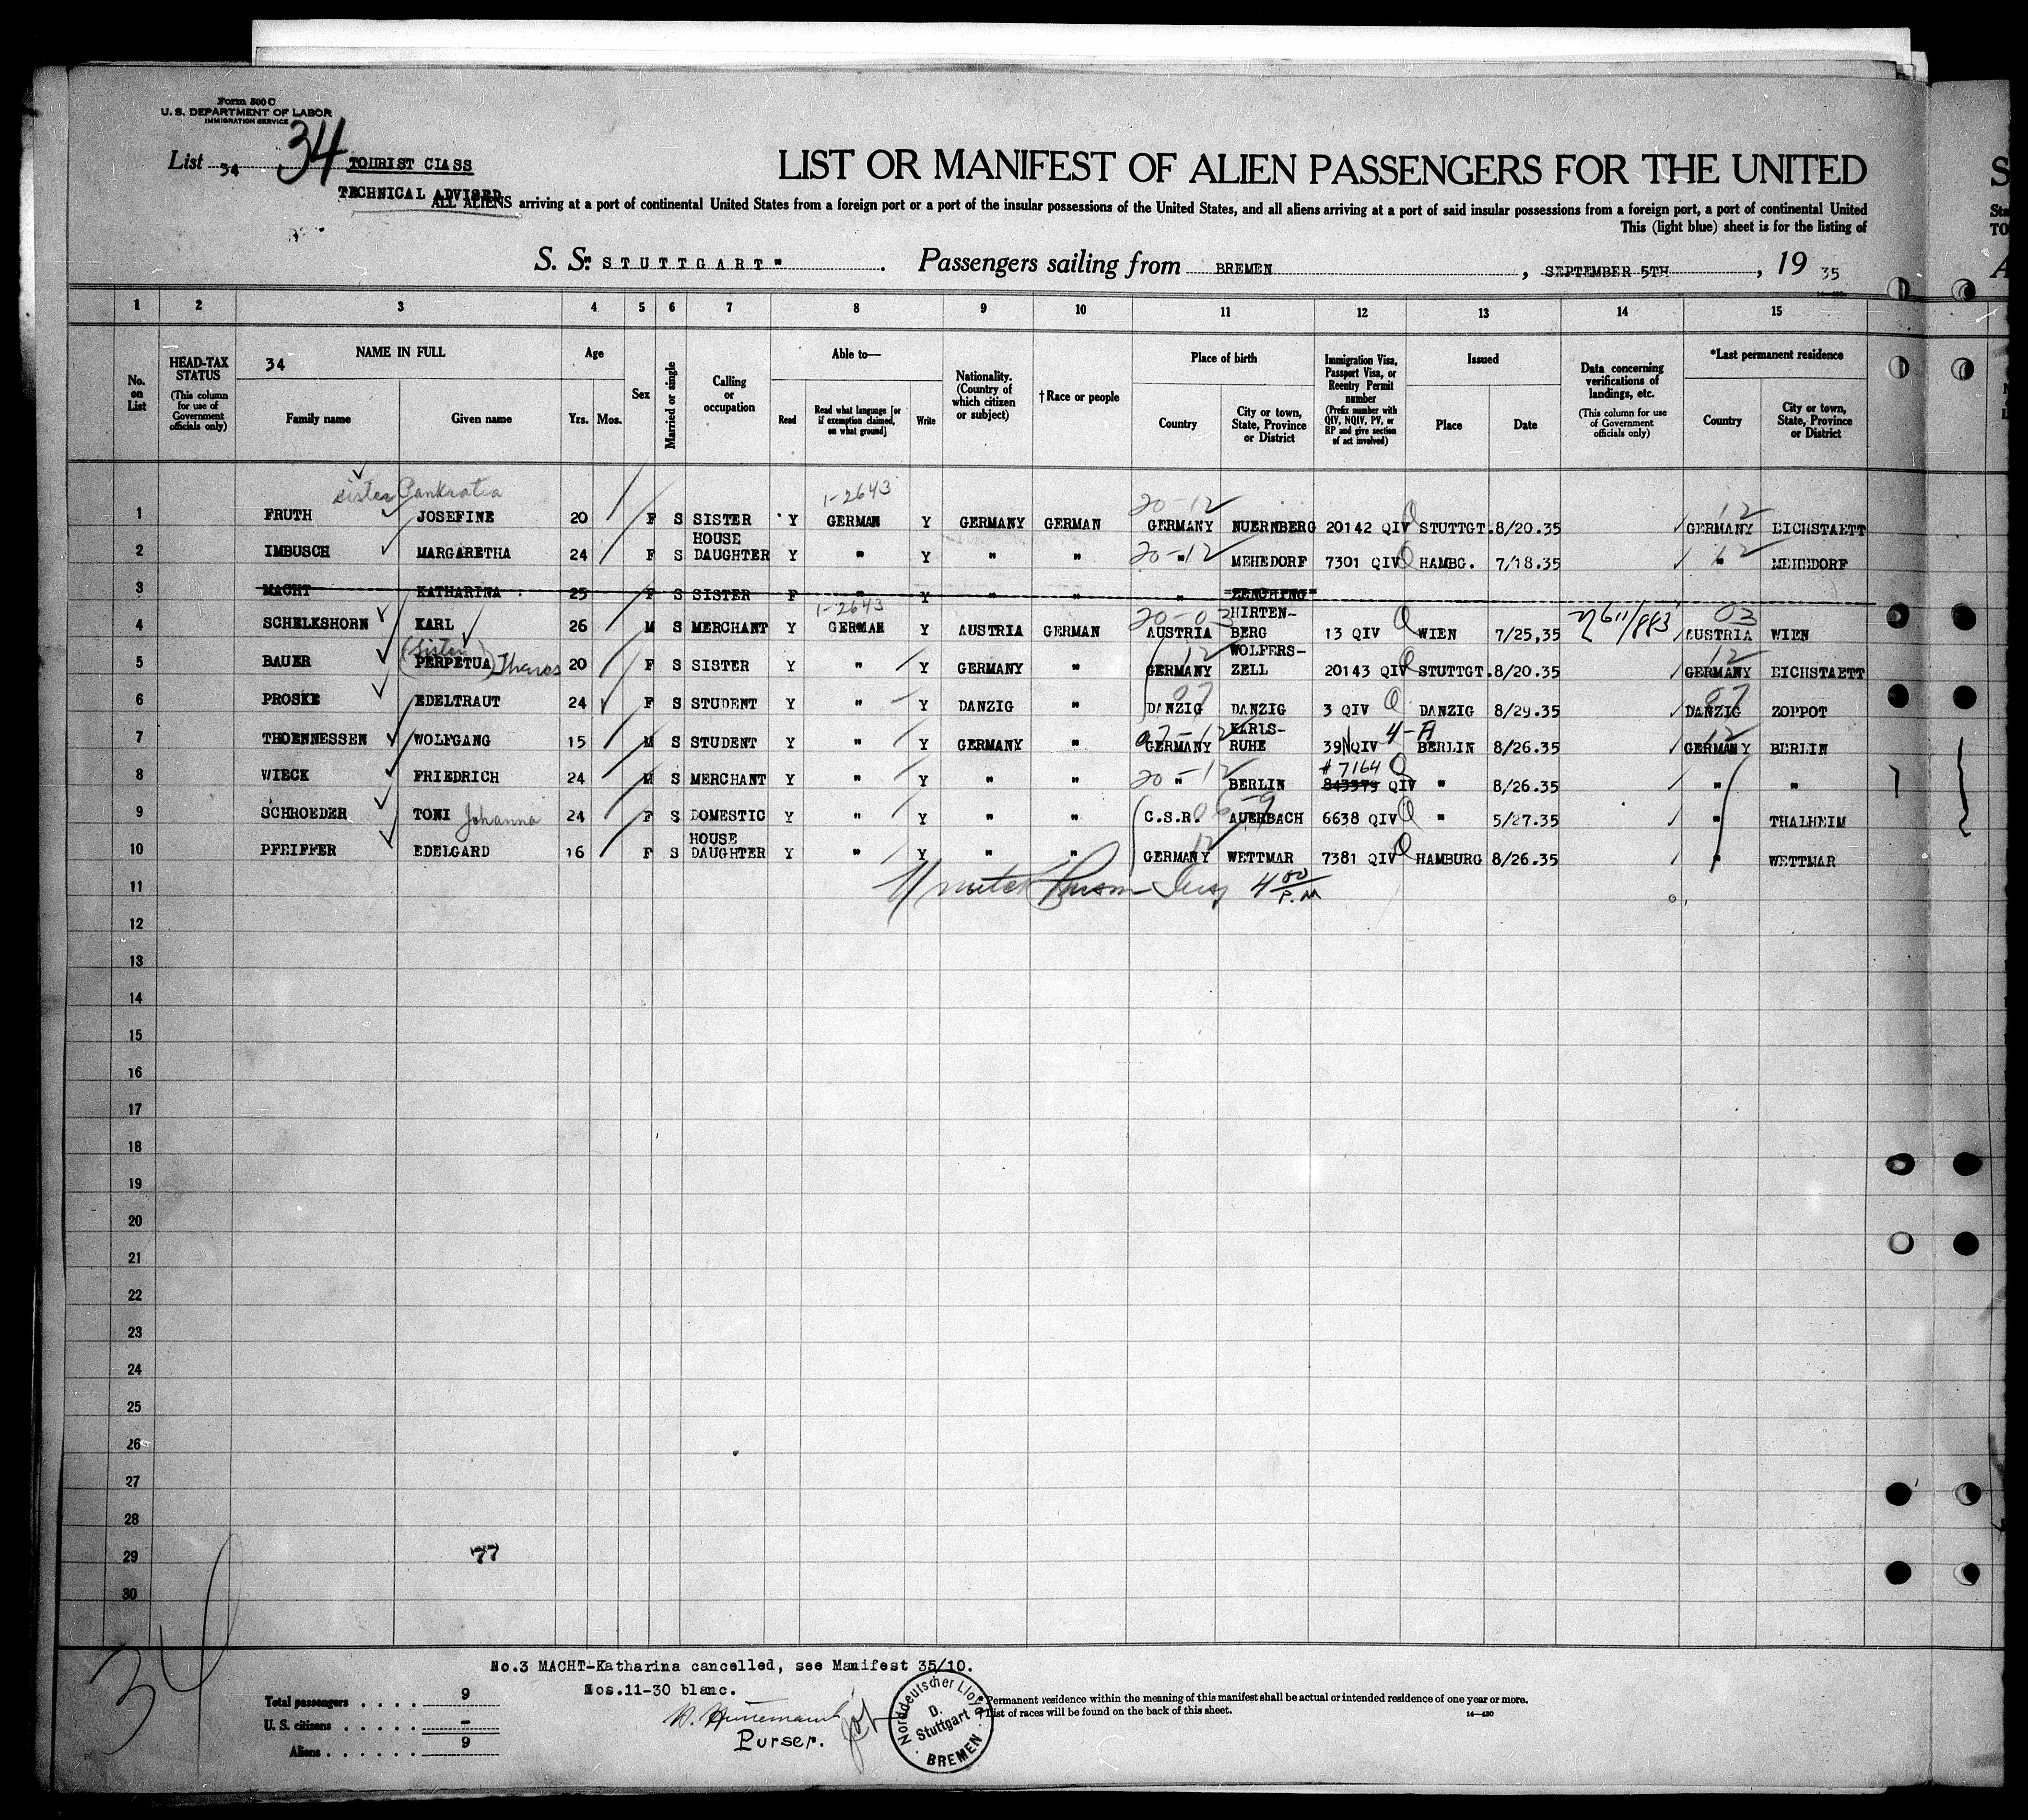 Form 500 C
U. S. DEPARTMENT OF LABOR
IMMIGRATION SERVICE
List 34 34 TOURIST CLASS
TECHNICAL ADVISED
LIST OR MANIFEST OF ALIEN PASSENGERS FOR THE UNITED
ALL ALIENS arriving at a port of continental United States from a foreign port or a port of the insular possessions of the United States, and all aliens arriving at a port of said insular possessions from a foreign port, a port of continental United
This (light blue) sheet is for the listing of
S. S. "STUTTGART" . Passengers sailing from BREMEN , SEPTEMBER 5TH , 19 35
1 2 3 4 5 6 7 8 9 10 11 12 13 14 15
No. on List
HEAD-TAX STATUS (This column for use of Government officials only)
34 NAME IN FULL
Family name Given name
Age Yrs. Mos.
Sex
Married or single
Calling or occupation
Able to—
Read Read what language [or if exemption claimed, on what ground] Write
Nationality. (Country of which citizen or subject)
†Race or people
Place of birth
Country City or town, State, Province or District
Immigration Visa, Passport Visa, or Reentry Permit number (Prefix number with QIV, NQIV, PV, or RP and give section of act involved)
Issued
Place Date
Data concerning verifications of landings, etc. (This column for use of Government officials only)
*Last permanent residence
Country City or town, State, Province or District
sister Pankratia 1-2643 20-12 12
1 FRUTH JOSEFINE 20 F S SISTER Y GERMAN Y GERMANY GERMAN GERMANY NUERNBERG 20142 QIV STUTTGT. 8/20.35 GERMANY EICHSTAETT
2 IMBUSCH MARGARETHA 24 F S HOUSE DAUGHTER Y " Y " " 20-12 " MEHEDORF 7301 QIV HAMBG. 7/18.35 12 " MEHEDORF
3 MACHT KATHARINA 25 F S SISTER F " Y " " " ZENCHING "
1-2643 20-03 03
4 SCHELKSHORN KARL 26 M S MERCHANT Y GERMAN Y AUSTRIA GERMAN AUSTRIA HIRTEN-BERG 13 QIV WIEN 7/25,35 611/883 AUSTRIA WIEN
5 BAUER (Sister PERPETUA) Theres 20 F S SISTER Y " Y GERMANY " 12 GERMANY WOLFERS-ZELL 20143 QIV STUTTGT. 8/20.35 12 GERMANY EICHSTAETT
6 PROSKE EDELTRAUT 24 F S STUDENT Y " Y DANZIG " 07 DANZIG DANZIG 3 QIV DANZIG 8/29.35 07 DANZIG ZOPPOT
7 THOENNESSEN WOLFGANG 15 M S STUDENT Y " Y GERMANY " 07-12 GERMANY KARLS-RUHE 39 NQIV 4-A BERLIN 8/26.35 12 GERMANY BERLIN
8 WIECK FRIEDRICH 24 M S MERCHANT Y " Y " " 20-12 " BERLIN #7164 843979 QIV " 8/26.35 " "
9 SCHROEDER TONI Johanna 24 F S DOMESTIC Y " Y " " C.S.R. 06-9 AUERBACH 6638 QIV " 5/27.35 " THALHEIM
10 PFEIFFER EDELGARD 16 F S HOUSE DAUGHTER Y " Y " " 12 GERMANY WETTMAR 7381 QIV HAMBURG 8/26.35 " WETTMAR
11 4 00 P.M
12
13
14
15
16
17
18
19
20
21
22
23
24
25
26
27
28
29 77
30
34
No.3 MACHT-Katharina cancelled, see Manifest 35/10.
Nos.11-30 blanc.
Total passengers . . . . 9
U. S. citizens . . . . . –
Aliens . . . . . . 9
Purser.
Norddeutscher Lloyd
D. Stuttgart
BREMEN
*Permanent residence within the meaning of this manifest shall be actual or intended residence of one year or more.
†List of races will be found on the back of this sheet.
14—430